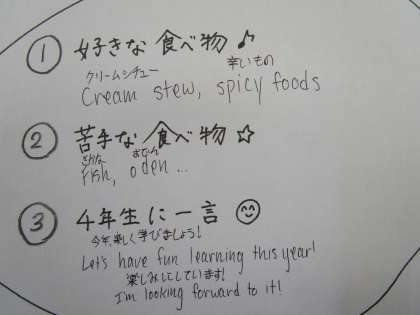 ① 好きな食べ物♪
クリームシチュー 辛いもの
Cream stew, spicy foods
② 苦手な食べ物☆
さかな おでん
fish, oden...
③ 4年生に一言☺
今年、楽しく学びましょう!
Let's have fun learning this year!
楽しみにしています!
I'm looking forward to it!